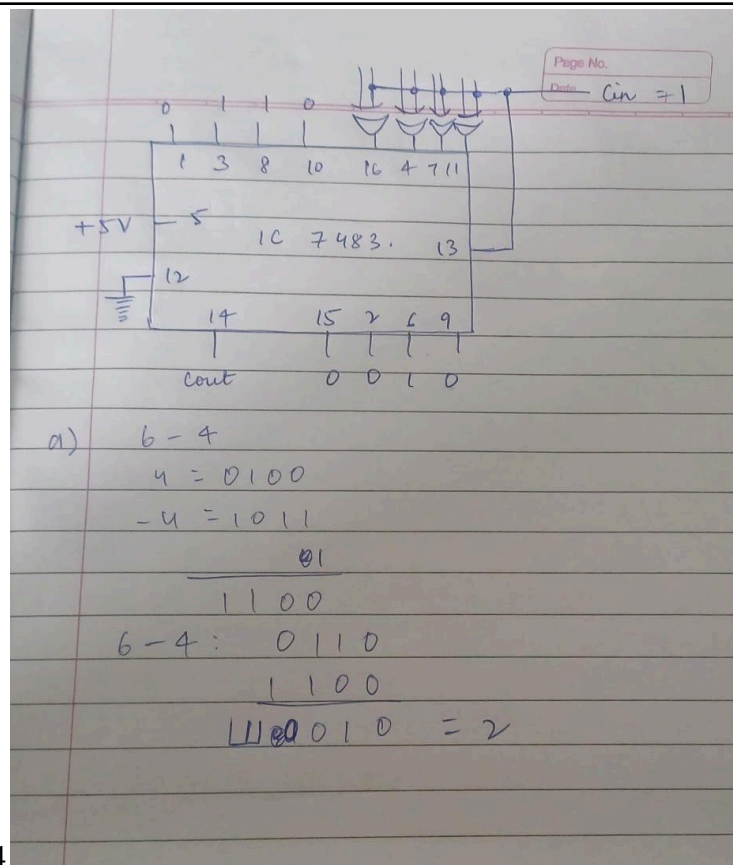 Page No.
Date
Cin = 1
0 1 1 0
1 3 8 10 16 4 7 11
+5V 5
IC 7483. 13
12
14 15 2 6 9
Cout 0 0 1 0
a) 6 - 4
4 = 0100
- 4 = 1011
1
1100
6 - 4 : 0110
1100
0010 = 2
4